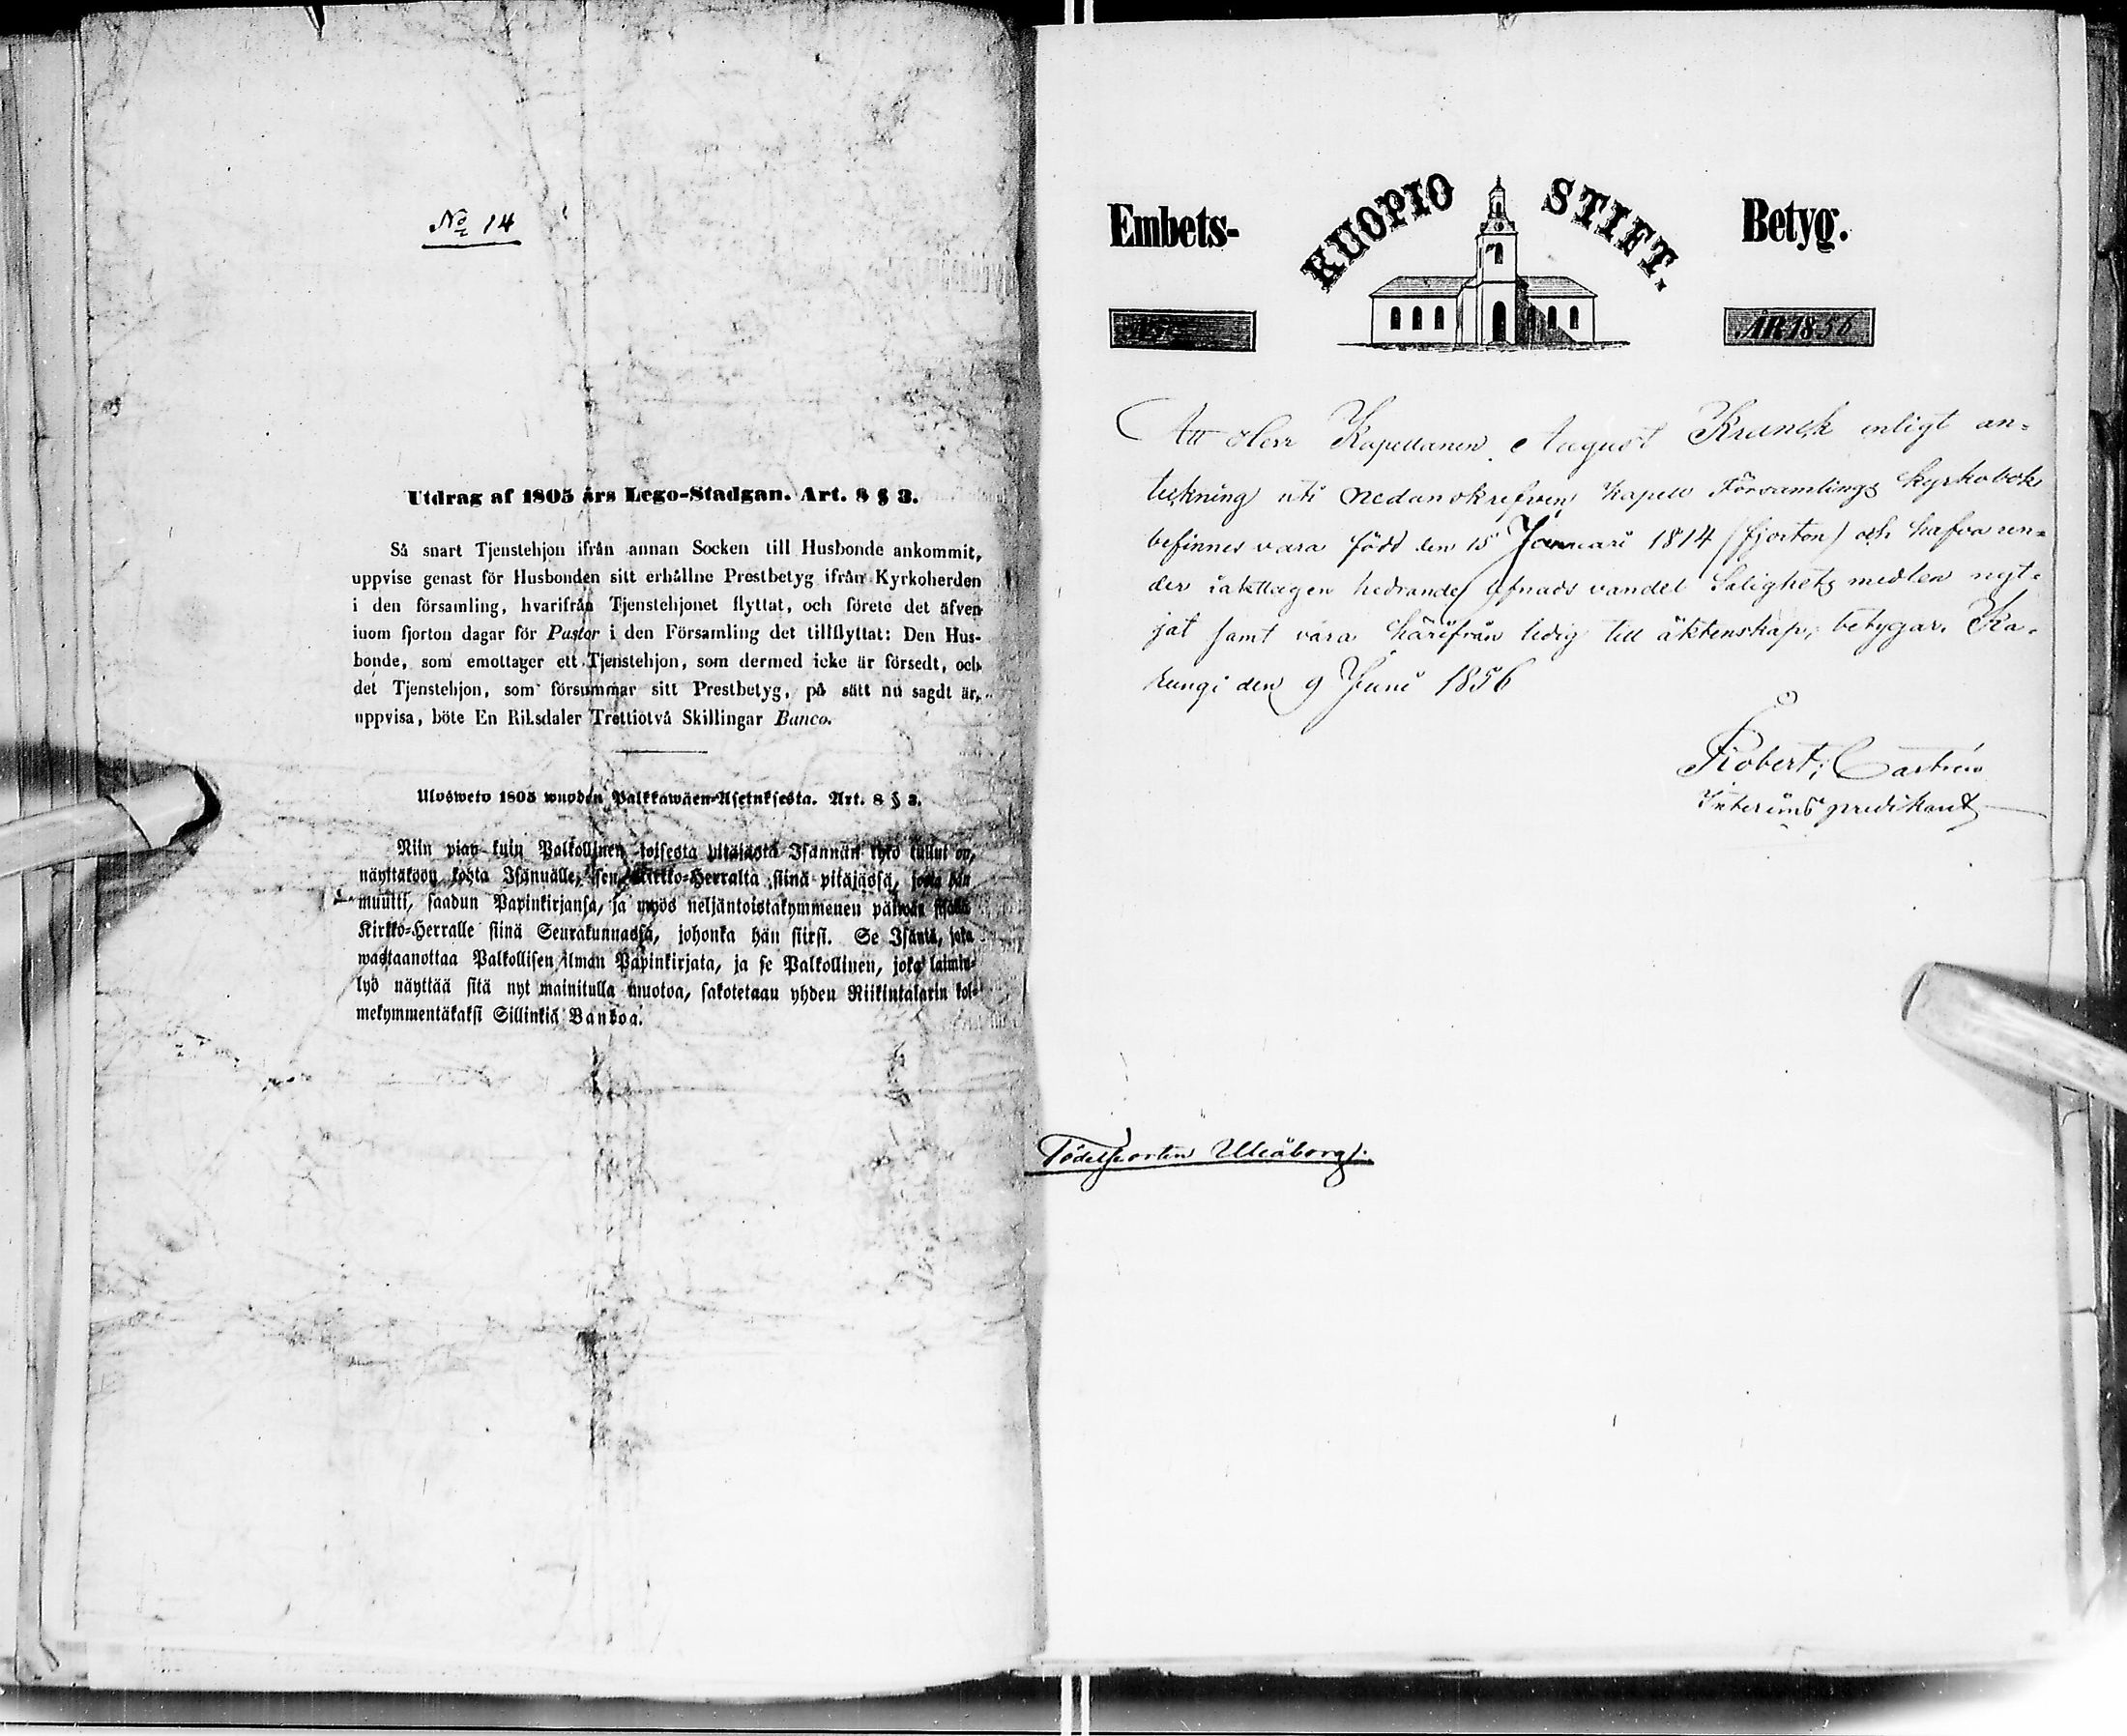 No 14
Utdrag af 1805 års Lego-Stadgan. Art. 8 § 3.
Så snart Tjenstehjon ifrån annan Socken till Husbonde ankommit,
uppvise genast för Husbonden sitt erhållne Prestbetyg ifrån Kyrkoherden
i den församling, hvarifrån Tjenstehjonet flyttat, och förete det äfven
inom fjorton dagar för Pastor i den Församling det tillflyttat: Den Hus-
bonde, som emottager ett Tjenstehjon, som dermed icke är försedt, och
det Tjenstehjon, som försummar sitt Prestbetyg, på sätt nu sagdt är,
uppvisa, böte En Riksdaler Trettiotvå Skillingar Banco.
Ulosweto 1805 wuoden Palkkawäen-Asetuksesta. Art. 8 § 3.
Niin pian kuin Palkollinen toisesta pitäjästä Isännän tykö tullut on,
näyttäköön kohta Isännälle, sen Kirkko-Herralta siinä pitäjässä, josta hän
muutti, saadun Papinkirjansa, ja myös neljäntoistakymmenen päiwän sisällä
Kirkko-Herralle siinä Seurakunnassa, johonka hän siirsi. Se Isäntä, joka
wastaanottaa Palkollisen ilman Papinkirjata, ja se Palkollinen, joka laimin-
lyö näyttää sitä nyt mainitulla muotoa, sakotetaan yhden Riikintalarin kol-
mekymmentäkaksi Sillinkiä Bankoa.
Embets- KUOPIO STIFT. Betyg.
No
ÅR 1856
Att Herr Kapellanen August Kranck enligt an-
teckning uti nedanskrefven Kapell Församlings Kyrkobok
befinnes vara född den 15 Januari 1814 (fjorton) och hafva un-
der iakttagen hedrande lefnads vandel Salighets medlen nytt-
jat samt vara härifrån ledig till äktenskap, betygar. Ka-
rungi den 9 Juni 1856
Robert Castrén
Interims predikant
Födelseorten Uleåborg.